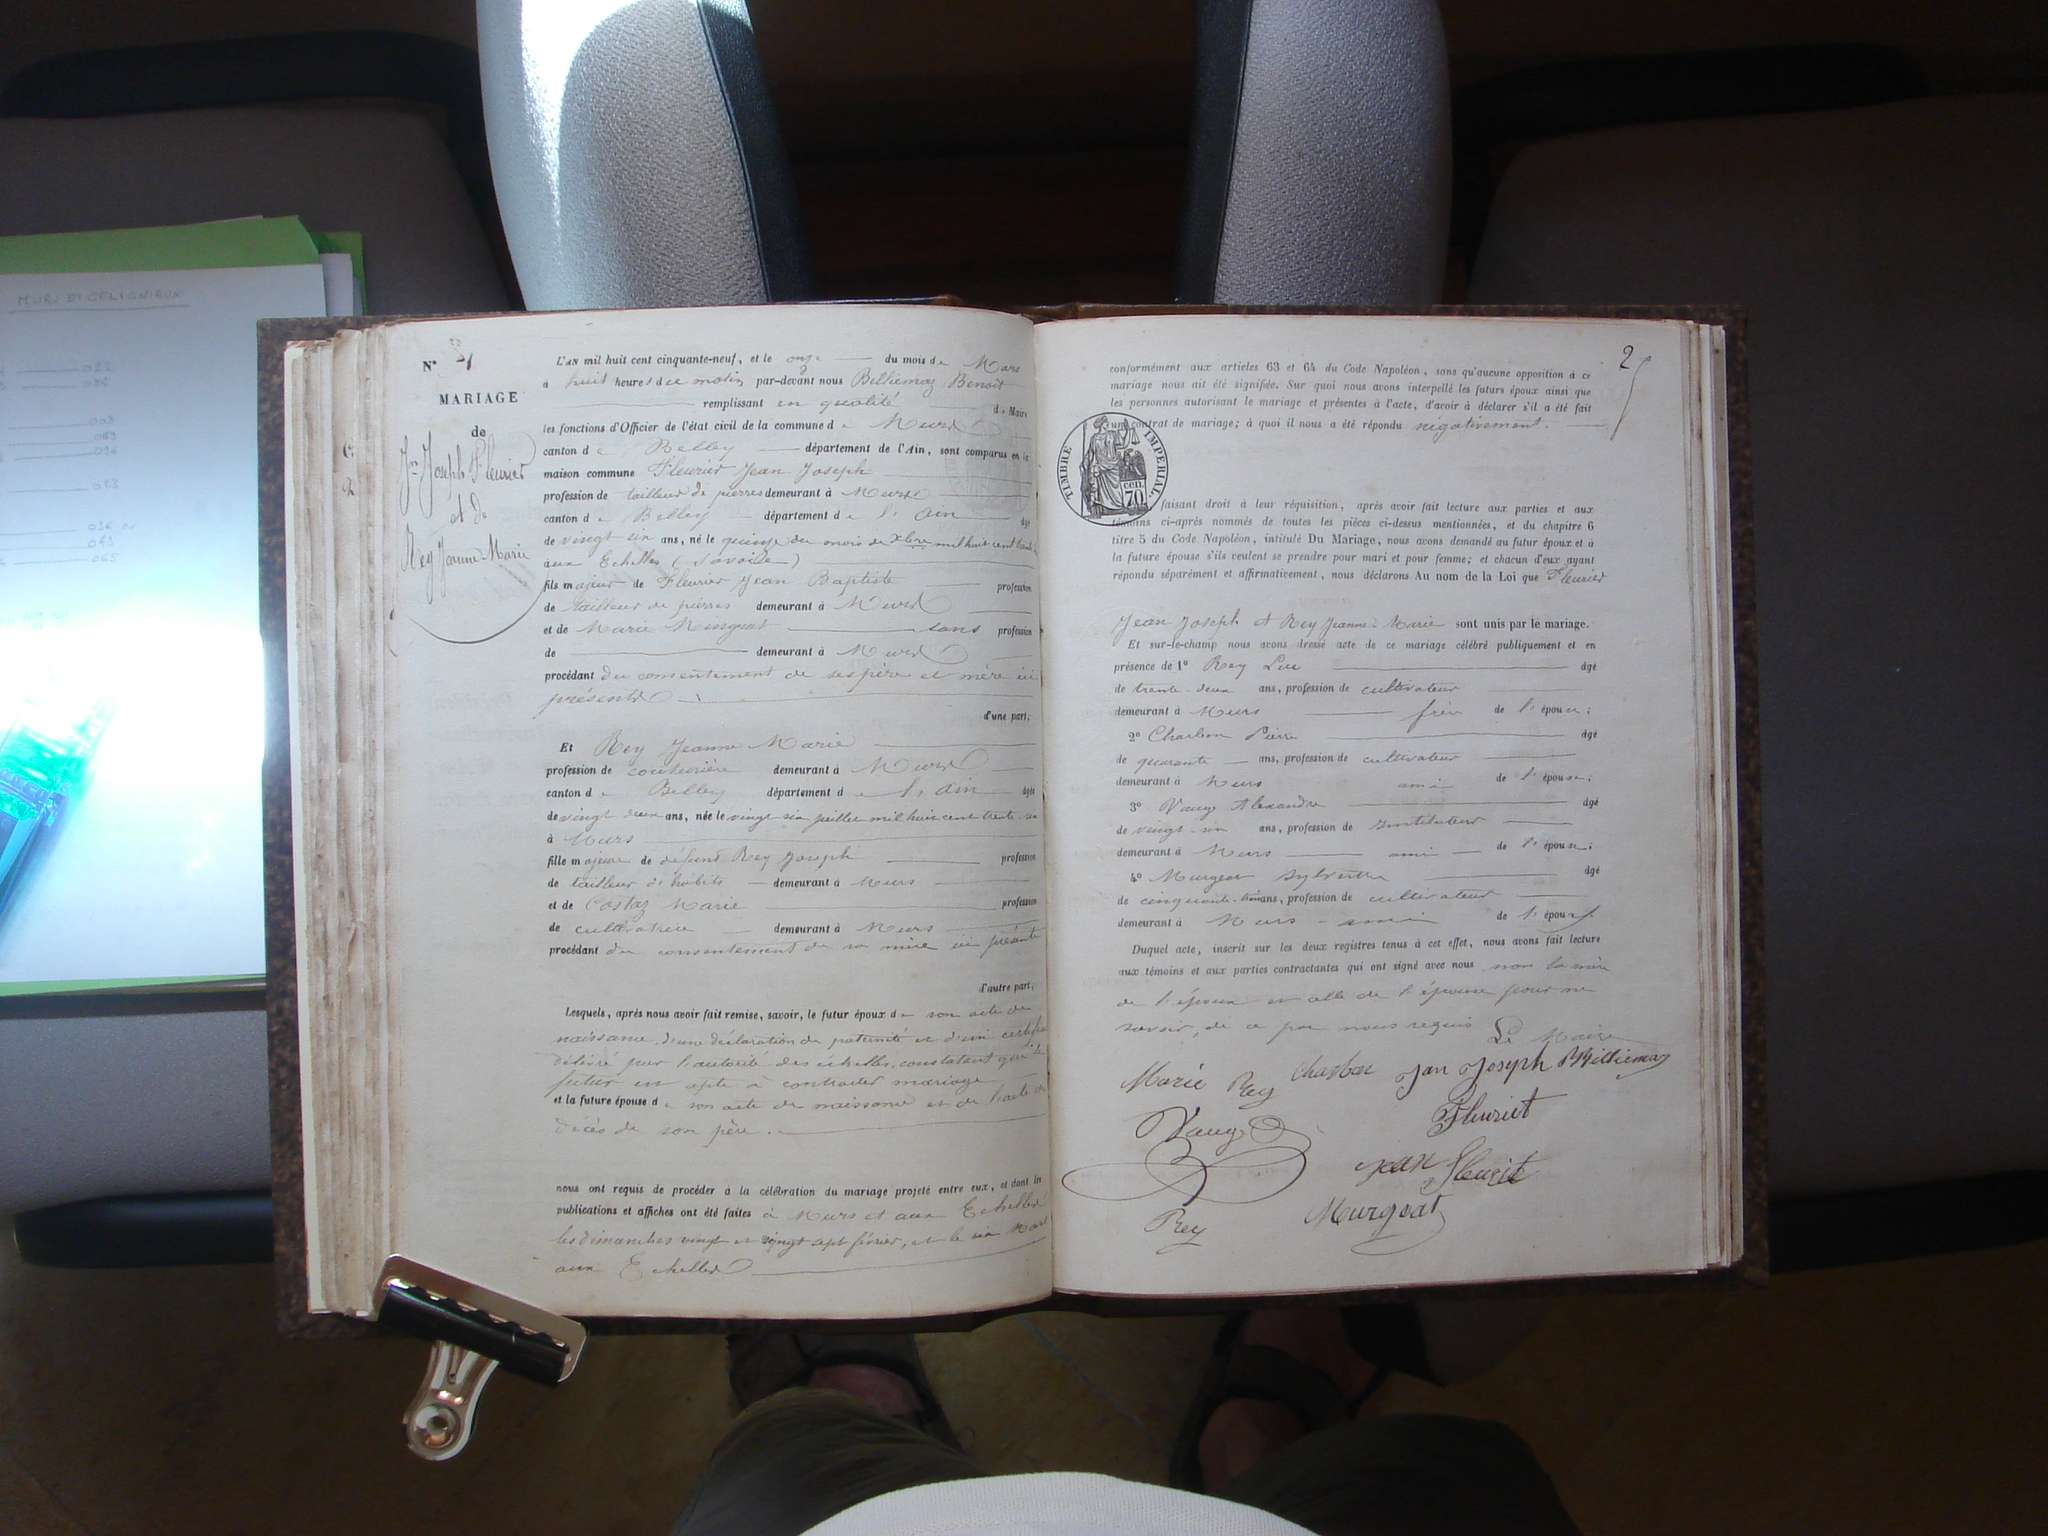 MURS ET GELIGNIEUX
N° 2
MARIAGE
de
Jn Joseph Fleuriet
et de
Rey Jeanne Marie
L'AN mil huit cent cinquante-neuf, et le onze du mois de Mars
à huit heures du matin par-devant nous Billiemaz Benoit
remplissant en qualité de Maire
les fonctions d'Officier de l'état civil de la commune de Murs
canton de Belley département de l'Ain, sont comparus en la
maison commune Fleuriet Jean Joseph
profession de tailleur de pierres demeurant à Murs
canton de Belley département de l'Ain âgé
de vingt ans, né le quinze du mois de Xbre mil huit cent
aux Echelles (Savoie)
fils majeur de Fleuriet Jean Baptiste profession
de tailleur de pierres demeurant à Murs
et de Marie sans profession
de demeurant à Murs
procédant du consentement de ses père et mère ici
présents
d'une part;
Et Rey Jeanne Marie
profession de couturière demeurant à Murs
canton de Belley département de l'Ain âgée
de vingt deux ans, née le vingt six juillet mil huit cent trente six
à Murs
fille majeure de défunt Rey Joseph profession
de tailleur d'habits demeurant à Murs
et de Costaz Marie profession
de cultivatrice demeurant à Murs
procédant du consentement de sa mère ici présente
d'autre part;
Lesquels, après nous avoir fait remise, savoir, le futur époux de son acte de
naissance, d'une déclaration de paternité et d'un certificat
délivré par l'autorité des échelles, constatant que le
futur est apte à contracter mariage
et la future épouse de son acte de naissance et de l'acte de
décès de son père.
nous ont requis de procéder à la célébration du mariage projeté entre eux, et dont les
publications et affiches ont été faites à Murs et aux Echelles
les dimanches vingt et vingt sept février, et le six Mars
aux Echelles
2
conformément aux articles 63 et 64 du Code Napoléon, sans qu'aucune opposition à ce
mariage nous ait été signifiée. Sur quoi nous avons interpellé les futurs époux ainsi que
les personnes autorisant le mariage et présentes à l'acte, d'avoir à déclarer s'il a été fait
un contrat de mariage; à quoi il nous a été répondu négativement.
TIMBRE IMPERIAL.
70 cen.
faisant droit à leur réquisition, après avoir fait lecture aux parties et aux
témoins ci-après nommés de toutes les pièces ci-dessus mentionnées, et du chapitre 6
titre 5 du Code Napoléon, intitulé Du Mariage, nous avons demandé au futur époux et à
la future épouse s'ils veulent se prendre pour mari et pour femme; et chacun d'eux ayant
répondu séparément et affirmativement, nous déclarons Au nom de la Loi que Fleuriet
Jean Joseph et Rey Jeanne-Marie sont unis par le mariage.
Et sur-le-champ nous avons dressé acte de ce mariage célébré publiquement et en
présence de 1° Rey Luc âgé
de trente-deux ans, profession de cultivateur
demeurant à Murs frère de l'épouse;
2° Charbon Pierre âgé
de quarante ans, profession de cultivateur
demeurant à Murs ami de l'épouse;
3° Vauge Alexandre âgé
de vingt-un ans, profession de Instituteur
demeurant à Murs ami de l'épouse;
4° Murgeat Sylvestre âgé
de cinquante-trois ans, profession de cultivateur
demeurant à Murs ami de l'époux
Duquel acte, inscrit sur les deux registres tenus à cet effet, nous avons fait lecture
aux témoins et aux parties contractantes qui ont signé avec nous non la mère
de l'époux et celle de l'épouse pour ne
savoir, de ce par nous requis Le Maire
Marie Rey Charbon Jan Joseph BBilliemaz
Vauge Fleuriet
Jean Fleurit
Rey Murgeat